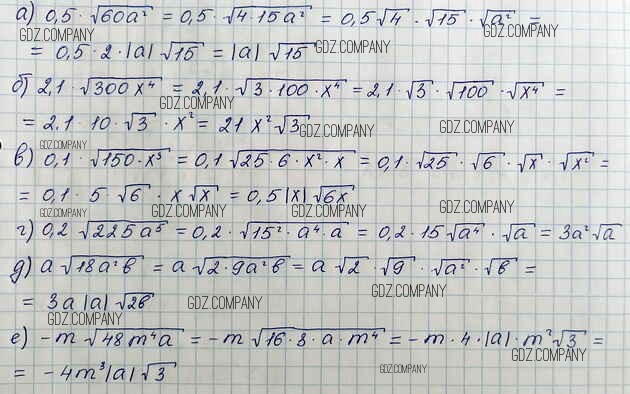 а) 0,5 · √60a² = 0,5 · √4·15a² = 0,5√4 · √15 · √a² =
GDZ.COMPANY GDZ.COMPANY
= 0,5 · 2 · |a| √15 = |a| √15 GDZ.COMPANY
б) 2,1 · √300 x⁴ = 2,1 · √3 · 100 · x⁴ = 2,1 · √3 · √100 · √x⁴ =
GDZ.COMPANY
= 2,1 · 10 · √3 · x² = 21 x² √3 GDZ.COMPANY GDZ.COMPANY
GDZ.COMPANY
в) 0,1 · √150 · x³ = 0,1 √25 · 6 · x² · x = 0,1 · √25 · √6 · √x · √x² =
= 0,1 · 5 · √6 · x √x = 0,5 |x| √6x
GDZ.COMPANY GDZ.COMPANY GDZ.COMPANY GDZ.COMPANY
г) 0,2 √225a⁵ = 0,2 · √15² · a⁴ · a = 0,2 · 15 √a⁴ · √a = 3a² √a
д) a √18a²b = a √2 · 9a²b = a √2 · √9 · √a² · √b =
GDZ.COMPANY
= 3a |a| √2b GDZ.COMPANY
GDZ.COMPANY
е) -m √48m⁴a = -m √16 · 3 · a · m⁴ = -m · 4 · |a| · m² √3 =
GDZ.COMPANY
= -4m³|a| √3 GDZ.COMPANY